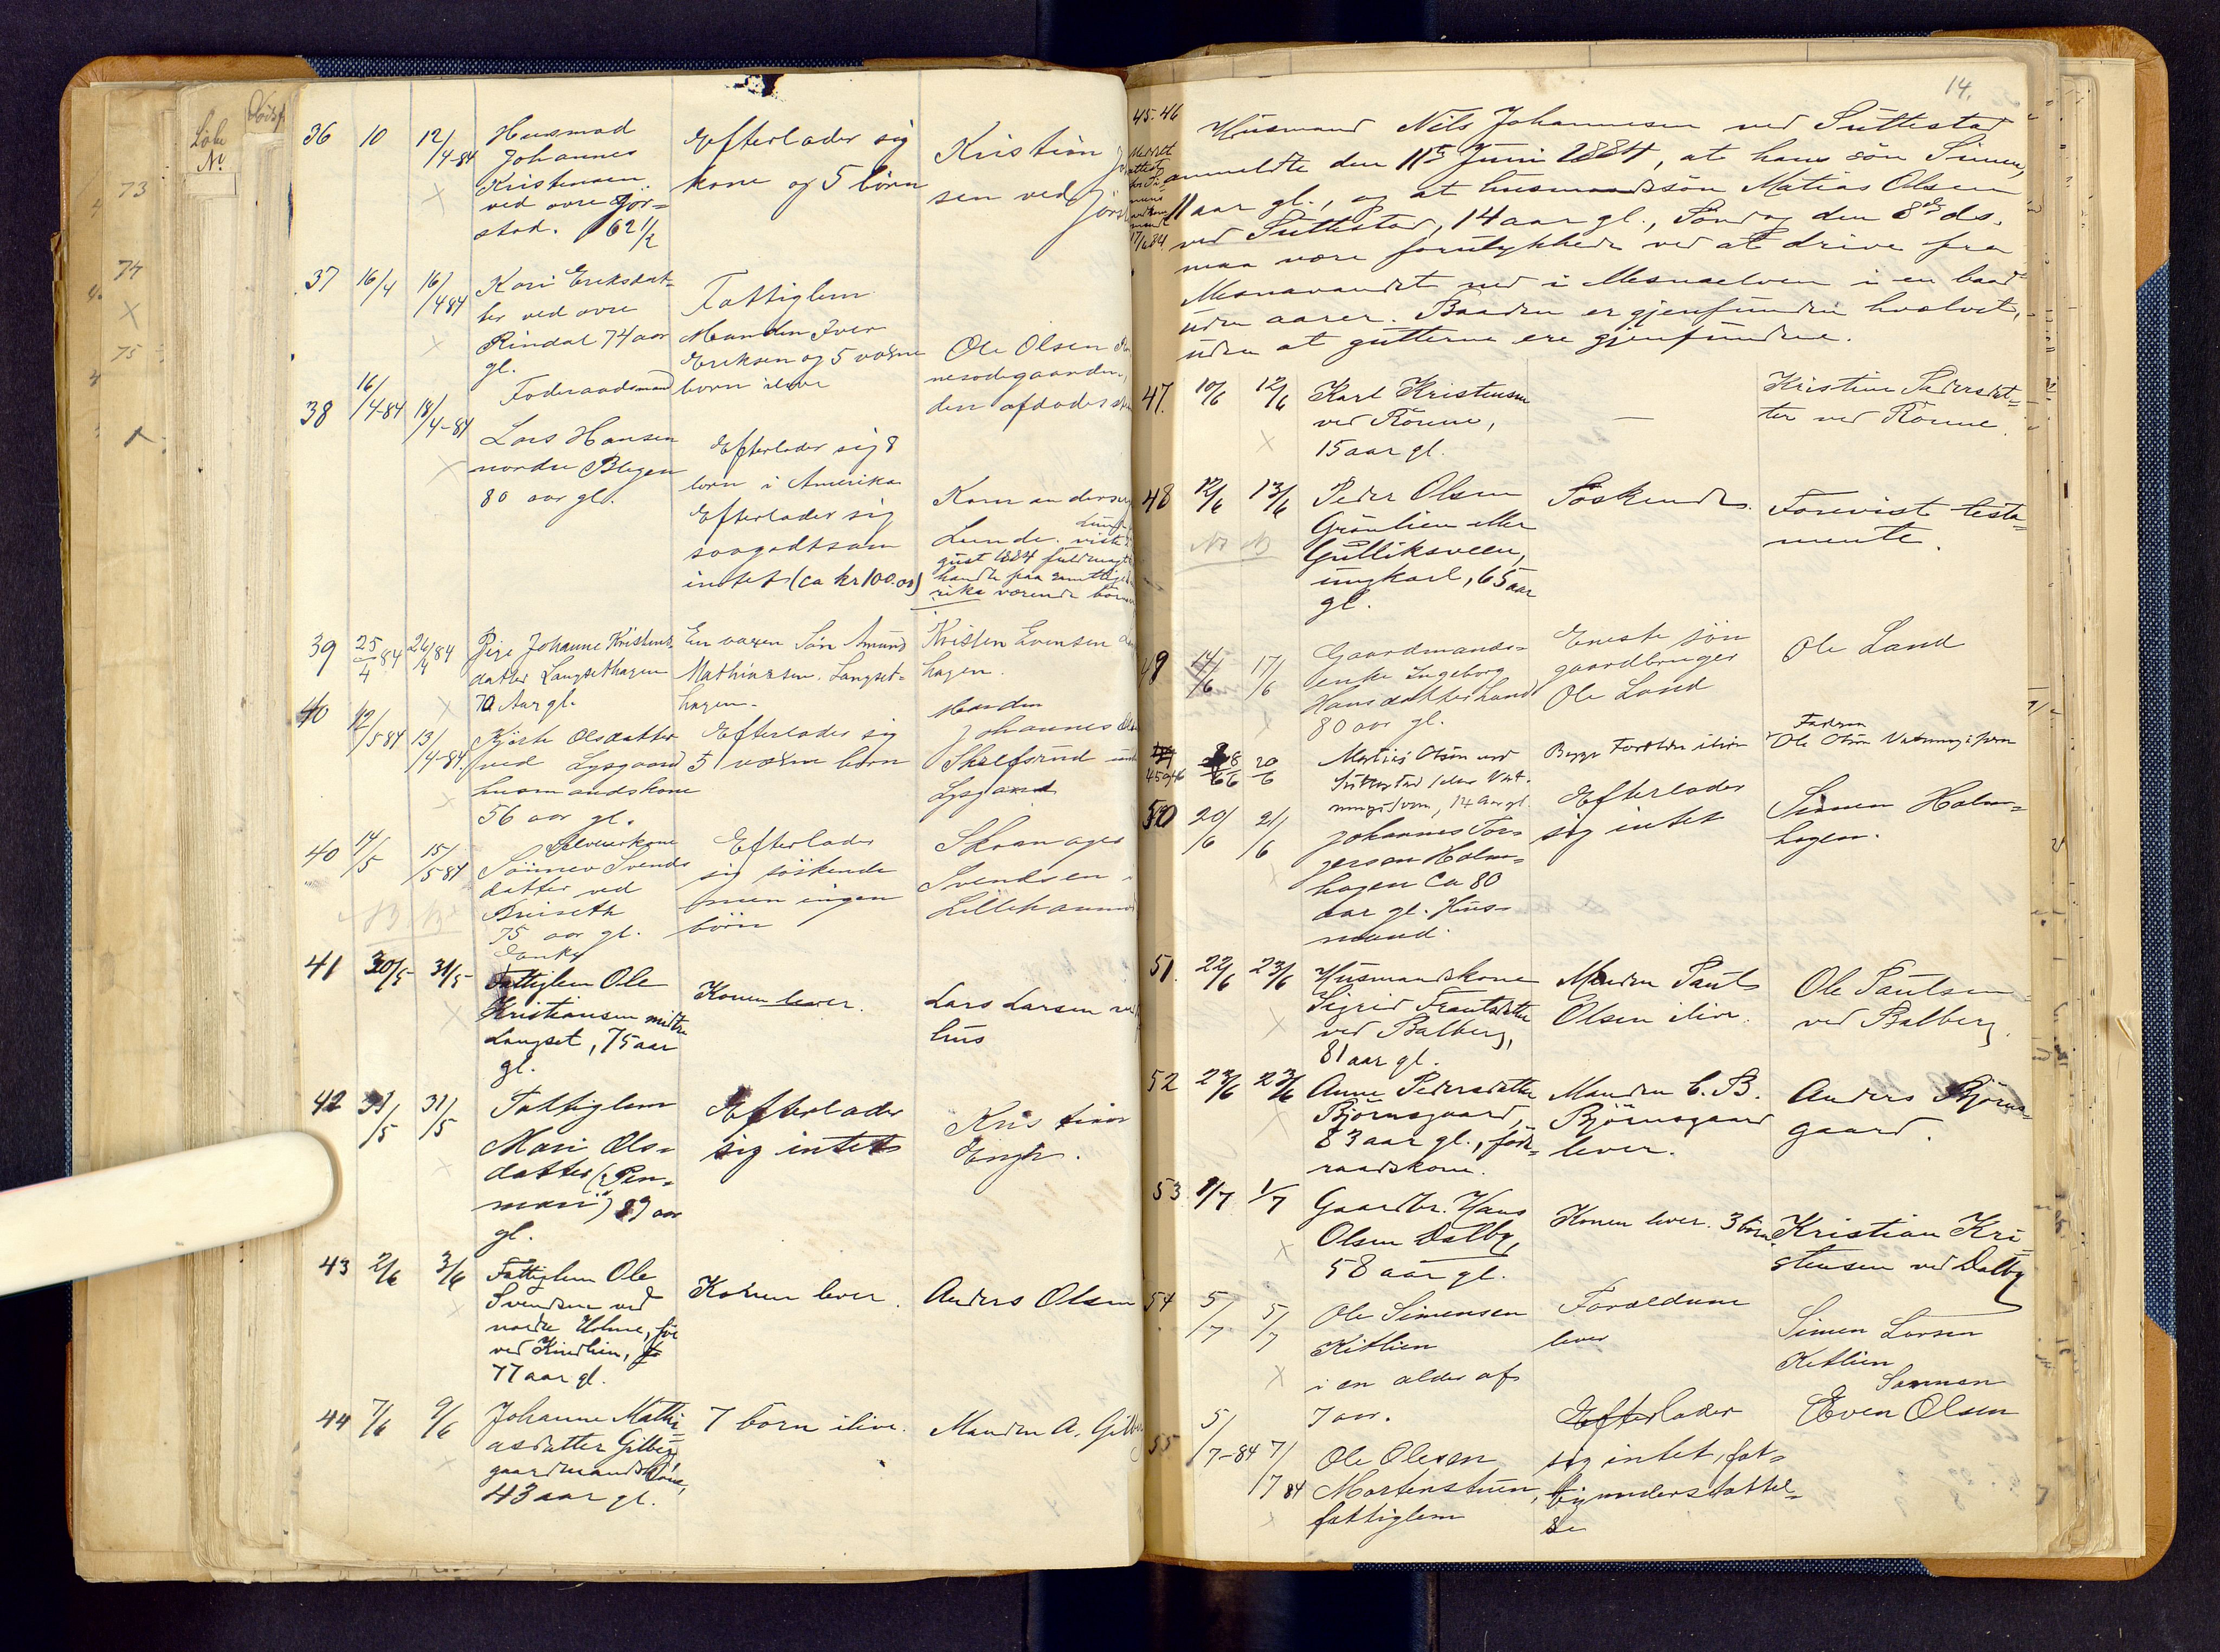 Løbe
No
Dødsf.
73
74
75
36 10 12/4-84 Husmad Efterlader sig Kristian
Johannes kone og 5 børn sen ved
Kristensen
ved øvre Jør=
stad. 62 1/2
37 16/4 16/4 84 Kari Eriksdat= Fattiglem
ter ved øvre Manden Iver
Rindal 74 aar Eriksen og 5 voxne Ole Olsen
gl. børn ilive
38 16/4-84 18/4-84 Føderaadsmand den afdødes
Lars Hansen Efterlader sig 8
nordre Blegen børn i Amerika
80 aar gl. Efterlader sig
saagodtsom Lunde.
intet (ca kr 100.00) gust 1884
rika værende børn
39 25/4 84 26/4 84 Pige Johanne Kristens En voxen Søn Amund Kristen Evensen
datter Langsethagen Mathiassen. Langset= hagen.
70 Aar gl. hagen.
40 12/5 84 13/4-84 Kjersti Olsdatter Efterlader sig Manden
ved Lysgaard 5 voxne børn Johannes
husmandskone Skrefsrud
56 aar gl. Lysgaard
40 14/5 15/5 84 Selveierkone Efterlader Skomager
Sönnev Svends sig söskende Svendsen
datter ved men ingen Lillehammer
Bruseth børn
75 aar gl.
41 30/5 31/5 Fattiglem Ole Konen lever. Lars Larsen
Kristiansen midtre hus
Langset, 75 aar
gl.
42 31/5 31/5 Fattiglem Efterlader Kristian
Mari Ols= sig intet Engh.
datter (Pen=
mari) 89 aar
gl.
43 2/6 3/6 Fattiglem Ole Konen lever. Anders Olsen
Svendsen ved
nordre Holme, før
ved Kindlien,
77 aar gl.
44 7/6 9/6 Johanne Mathi= 7 børn ilive. Manden A. Gilberg
asdatter Gilberg
gaardmandskone,
43 aar gl.
14.
45-46 Husmand Nils Johannesen ved Suttestad
anmeldte den 11te Juni 1884, at hans søn Simen,
11 aar gl., og at husmandssøn Matias Olsen
ved Suttestad, 14 aar gl., Söndag den 8de ds.
maa være forulykkede ved at drive fra
Mesnavandet ned i Mesnaelven i en baad
uden aarer. Baaden er gjenfunden hvælvet,
uden at gutterne ere gjenfundne.
17/6 84
47. 10/6 12/6 Karl Kristensen — Kristine Pedersdat=
ved Rönne, ter ved Rönne.
15 aar gl.
48 12/6 13/6 Peder Olsen Söskende. Forevist testa=
Grönlien eller mente.
Gulliksveen,
ungkarl, 65 aar
gl.
49 14/6 17/6 Gaardmands= Eneste søn Ole Land
enke Ingeborg gaardbruger
Hansdatter Land Ole Land
80 aar gl.
45 og 46 8/6 20/6 Mathias Olsen ved Begge Forældre ilive Faderen
Suttestad Ole Olsen
14 Aar gl.
50 20/6 21/6 Johannes Tor= Efterlader Simen Holm=
gersen Holm= sig intet hagen.
hagen ca 80
aar gl. Hus=
mand.
51. 22/6 23/6 Husmandskone Manden Paul Ole Paulsen
Sigrid Frantsdatter Olsen ilive. ved Balberg.
ved Balberg,
81 aar gl.
52 23/6 23/6 Anne Pedersdatter Manden C. B. Anders Björns=
Björnsgaard, Björnsgaard gaard.
83 aar gl., føde= lever.
raadskone.
53 1/7 1/7 Gaardbr. Hans Konen lever. 3 børn. Kristian Kri
Olsen Dalby, stensen ved Dalby
58 aar gl.
54 5/7 5/7 Ole Simensen Forældrene Simen Larsen
Kitlien lever Kitlien
i en alder af
7 aar.
55 5/7-84 7/7 84 Ole Olesen Efterlader Sønnen
Mortenstuen, sig intet, fat= Even Olsen
fattiglem tigunderstøttel=
se